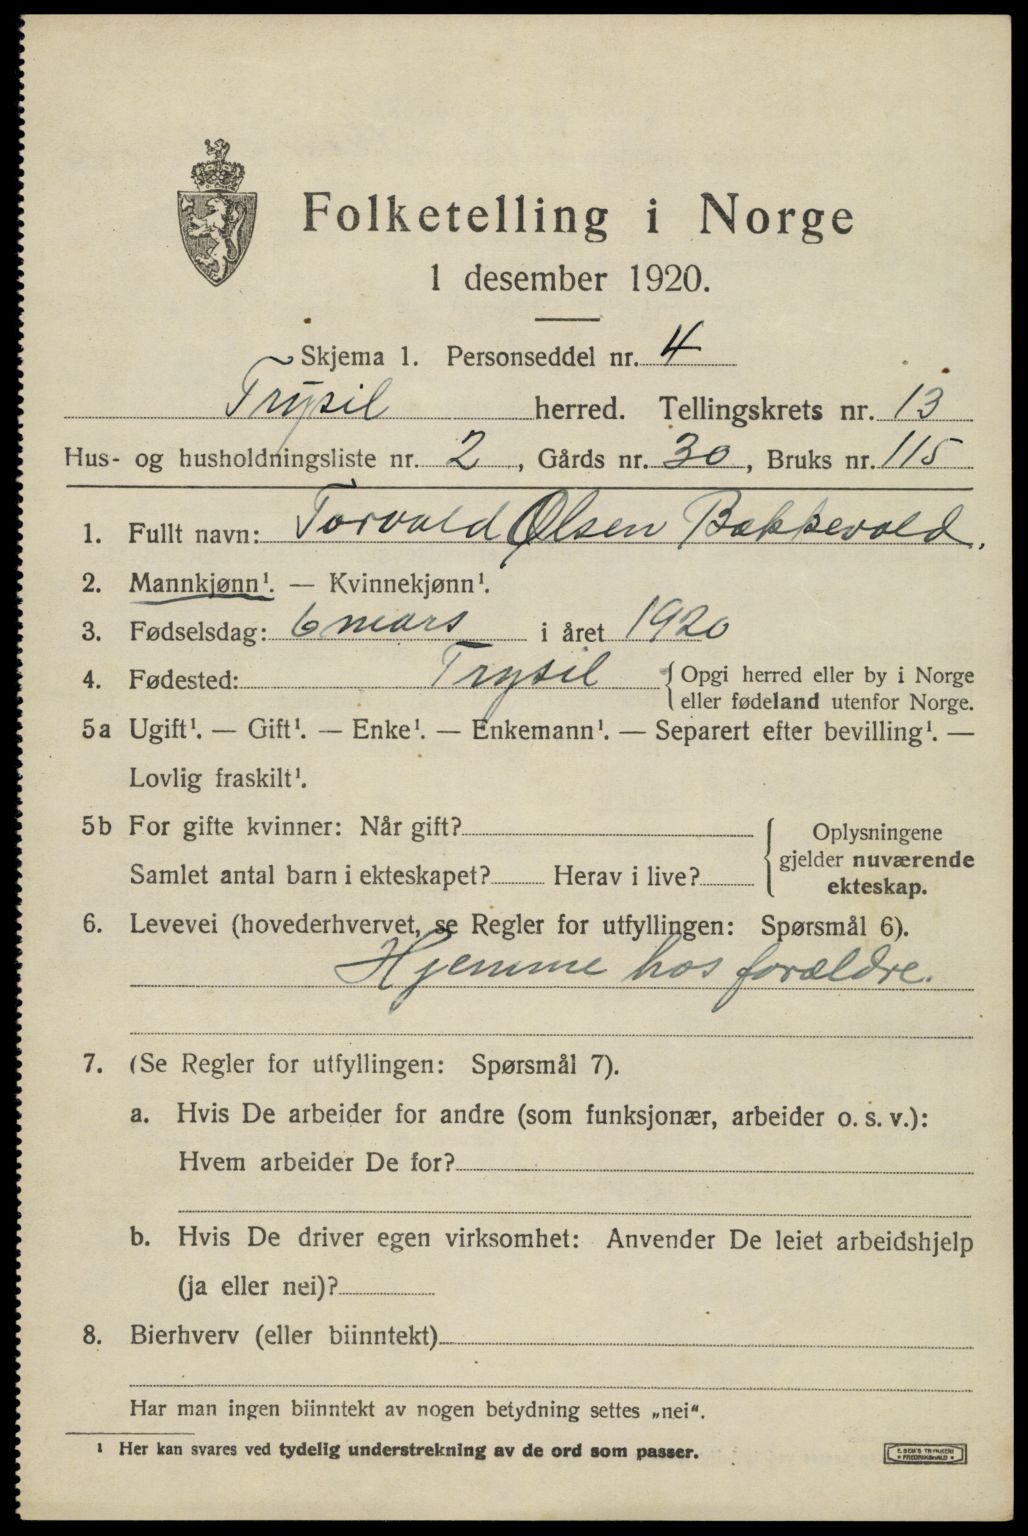 Folketelling i Norge
1 desember 1920.
Skjema 1. Personseddel nr. 4
Trysil herred. Tellingskrets nr. 13
Hus- og husholdningsliste nr. 2, Gårds nr. 30, Bruks nr. 115
1. Fullt navn: Torvald Olsen Bækkevold.
2. Mannkjønn¹. — Kvinnekjønn¹.
3. Fødselsdag: 6 mars i året 1920
4. Fødested: Trysil Opgi herred eller by i Norge
eller fødeland utenfor Norge.
5a Ugift¹. — Gift¹. — Enke¹. — Enkemann¹. — Separert efter bevilling¹. —
Lovlig fraskilt¹.
5b For gifte kvinner: Når gift?
Samlet antal barn i ekteskapet? Herav i live?
Oplysningene
gjelder nuværende
ekteskap.
6. Levevei (hovederhvervet, se Regler for utfyllingen: Spørsmål 6).
Hjemme hos forældre.
7. (Se Regler for utfyllingen: Spørsmål 7).
a. Hvis De arbeider for andre (som funksjonær, arbeider o. s. v.):
Hvem arbeider De for?
b. Hvis De driver egen virksomhet: Anvender De leiet arbeidshjelp
(ja eller nei)?
8. Bierhverv (eller biinntekt)
Har man ingen biinntekt av nogen betydning settes „nei“.
¹ Her kan svares ved tydelig understrekning av de ord som passer.
E. SEM'S TRYKKERI
FREDRIKSHALD